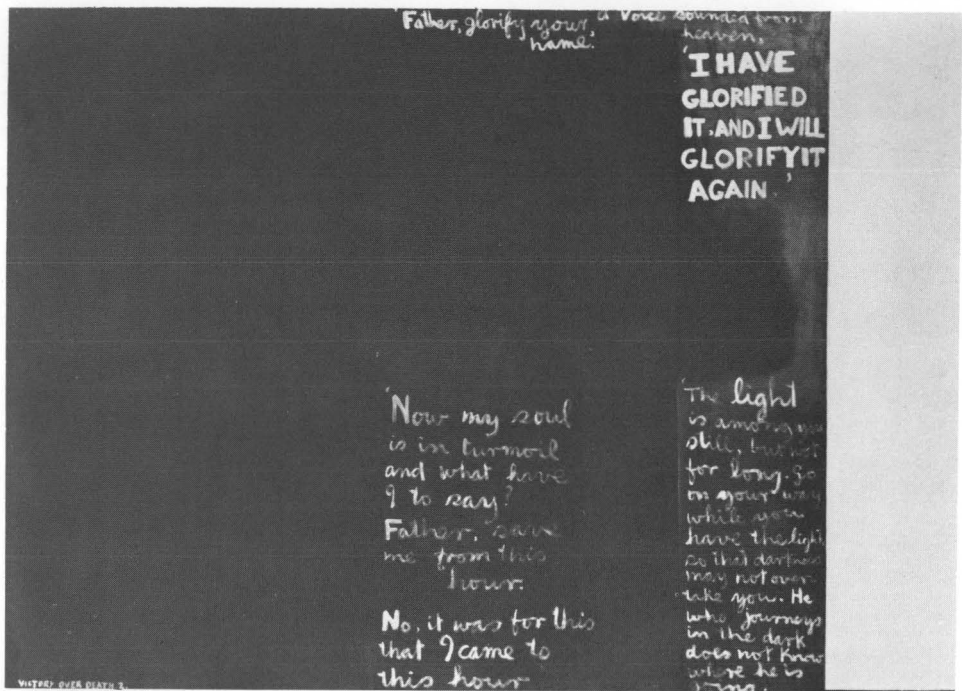 'Father, glorify your
name.'
a voice sounded from
heaven,
'I HAVE
GLORIFIED
IT, AND I WILL
GLORIFY IT
AGAIN.'
'Now my soul
is in turmoil
and what have
I to say?
Father, save
me from this
hour.
No, it was for this
that I came to
this hour
'The light
is among you
still, but not
for long. Go
on your way
while you
have the light
so that darkness
may not over
take you. He
who journeys
in the dark
does not know
where he is
going.
VICTORY OVER DEATH 2.